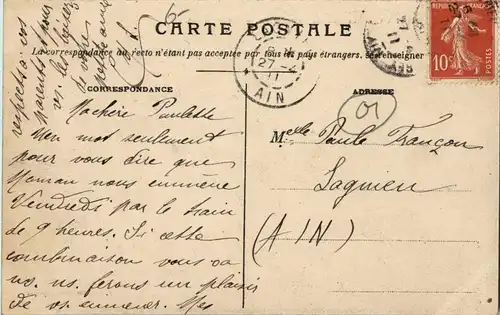 CARTE POSTALE
La correspondance au recto n'étant pas acceptée par tous les pays étrangers, se renseigner
CORRESPONDANCE
ADRESSE
Ma chère Paulette
Un mot seulement
pour vous dire que
Maman nous emmène
Vendredi par le train
de 9 heures. Si cette
combinaison vous va
ns. ns. ferons un plaisir
de vs. emmener. Mes
respects à vos
parents, pour
vs. les baisers
de votre
Melle Paule Françon
Lagnieu
(AIN)
01
6-
27-2
11
AIN
REPUBLIQUE FRANÇAISE
10c